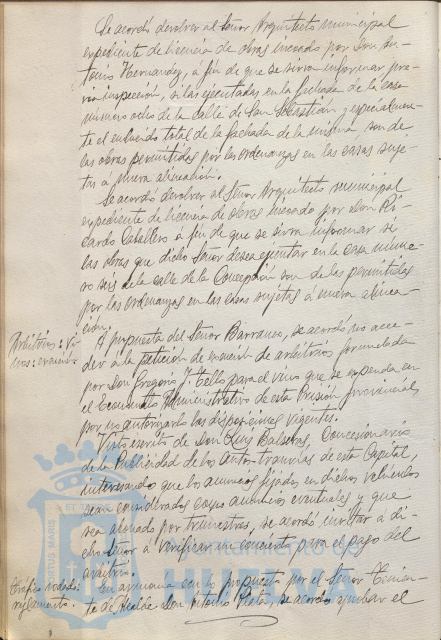 Se acordó devolver al Señor Arquitecto municipal
expediente de licencia de obras incoado por Don An-
tonio Hernandez, á fin de que se sirva informar pre-
via inspección, si las ejecutadas en la fachada de la casa
número ocho de la calle de San Sebastián y especialmen-
te el enlucido total de la fachada de la misma son de
las obras permitidas por las ordenanzas en las casas suje-
tas á nueva alineación.
Se acordó devolver al Señor Arquitecto municipal
expediente de licencia de obras incoado por Don Ri-
cardo Caballero á fin de que se sirva informar si
las obras que dicho Señor desea ejecutar en la casa núme-
ro seis de la calle de la Concepción son de las permitidas
por las ordenanzas en las casas sujetas á nueva alinea-
ción.
Arbitrios: Vi-
nos: exención
A propuesta del Señor Barranco, se acordó no acce-
der a la petición de exención de arbitrios formulada
por Don Gregorio J. Tello para el vino que se expenda en
el Economato Administrativo de esta Prisión provincial
por no autorizarlo las disposiciones vigentes.
Visto escrito de Don Luis Balseras, Concesionario
de la Publicidad de los Autos-tranvias de esta Capital,
interesando que los anuncios fijados en dichos vehículos
sean considerados como anuncios eventuales y que
sea abonado por trimestres, se acordó invitar á di-
cho Señor á verificar un concierto para el pago del
arbitrio.
Tráfico rodado:
reglamento.
En armonía con lo propuesto por el Señor Tenien-
te de Alcalde Don Plata, se acordó aprobar el
Ayuntamiento de
HUELVA